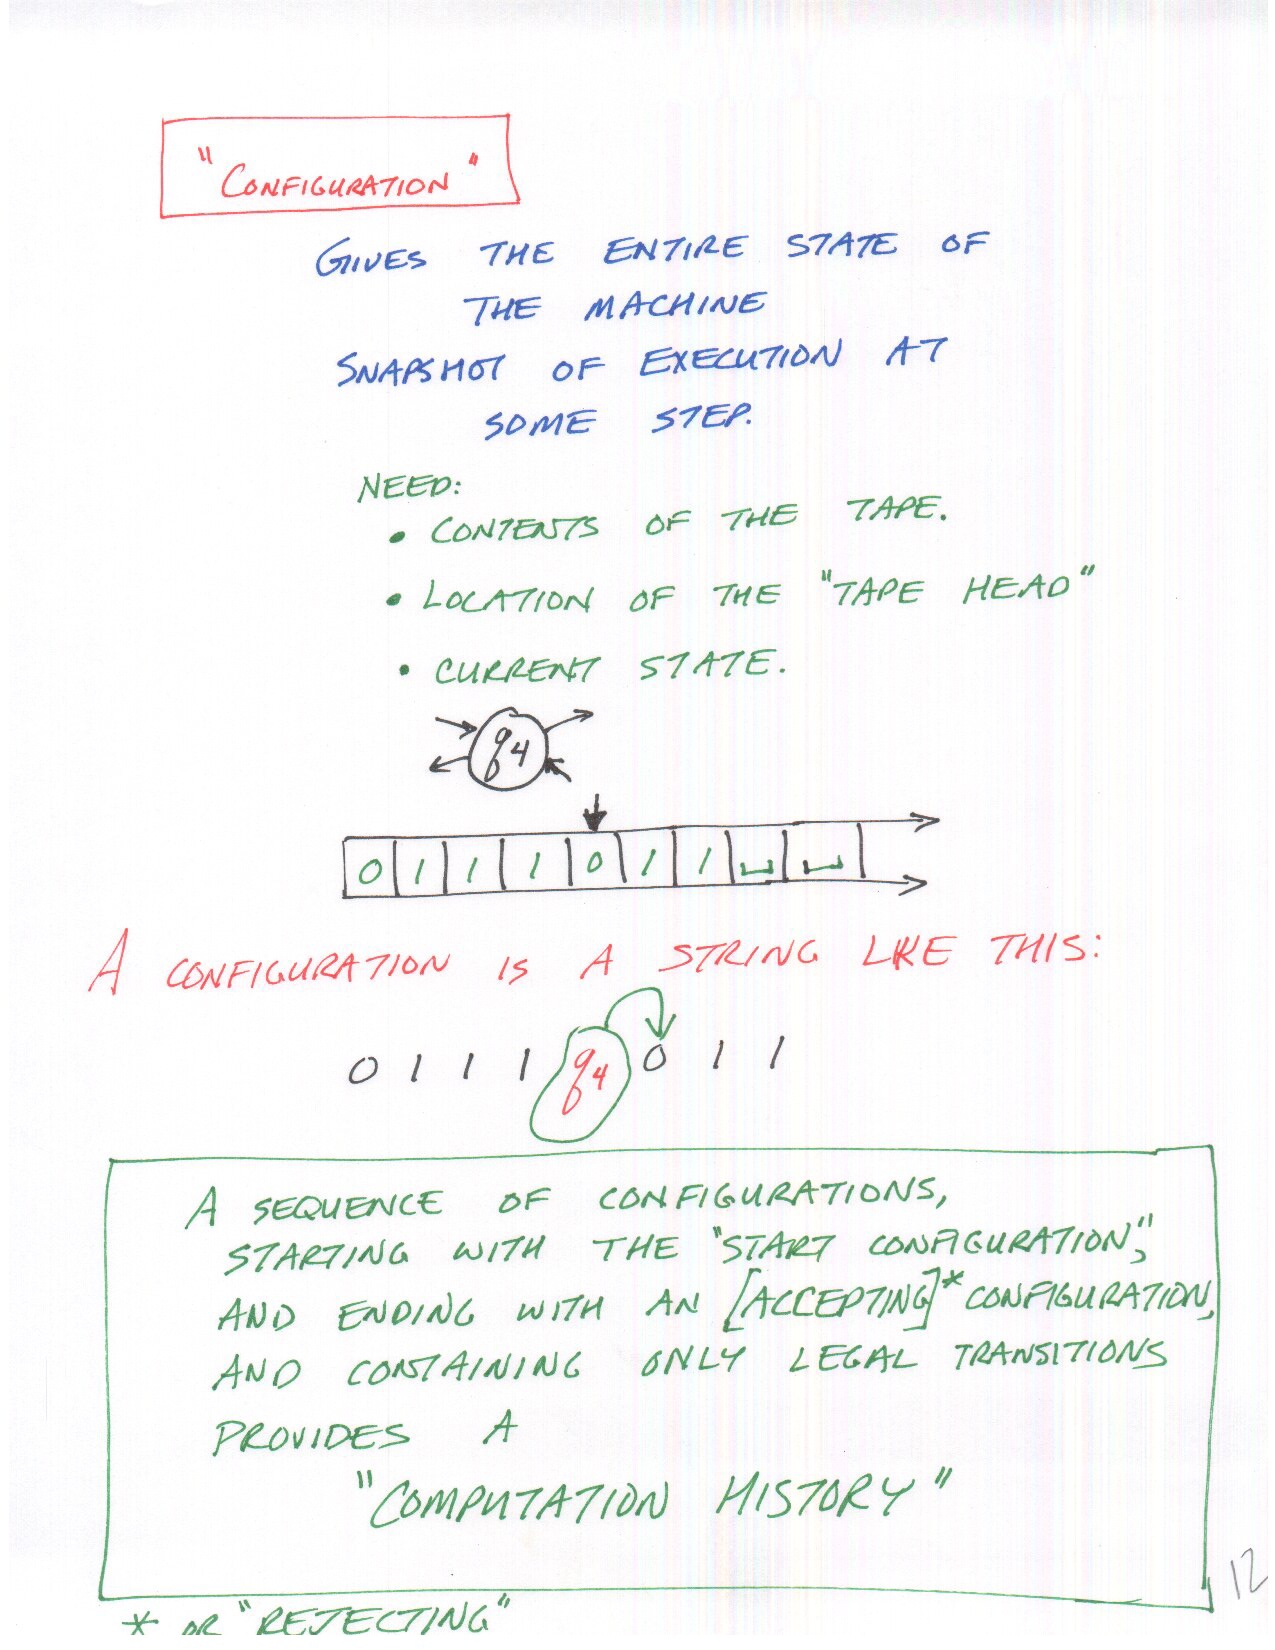 "CONFIGURATION"
GIVES THE ENTIRE STATE OF
THE MACHINE
SNAPSHOT OF EXECUTION AT
SOME STEP.
NEED:
• CONTENTS OF THE TAPE.
• LOCATION OF THE "TAPE HEAD"
• CURRENT STATE.
q4
0 1 1 1 0 1 1 ⌴ ⌴
A CONFIGURATION IS A STRING LIKE THIS:
0 1 1 1 q4 0 1 1
A SEQUENCE OF CONFIGURATIONS,
STARTING WITH THE "START CONFIGURATION",
AND ENDING WITH AN [ACCEPTING]* CONFIGURATION,
AND CONTAINING ONLY LEGAL TRANSITIONS
PROVIDES A
"COMPUTATION HISTORY"
12
* OR "REJECTING"